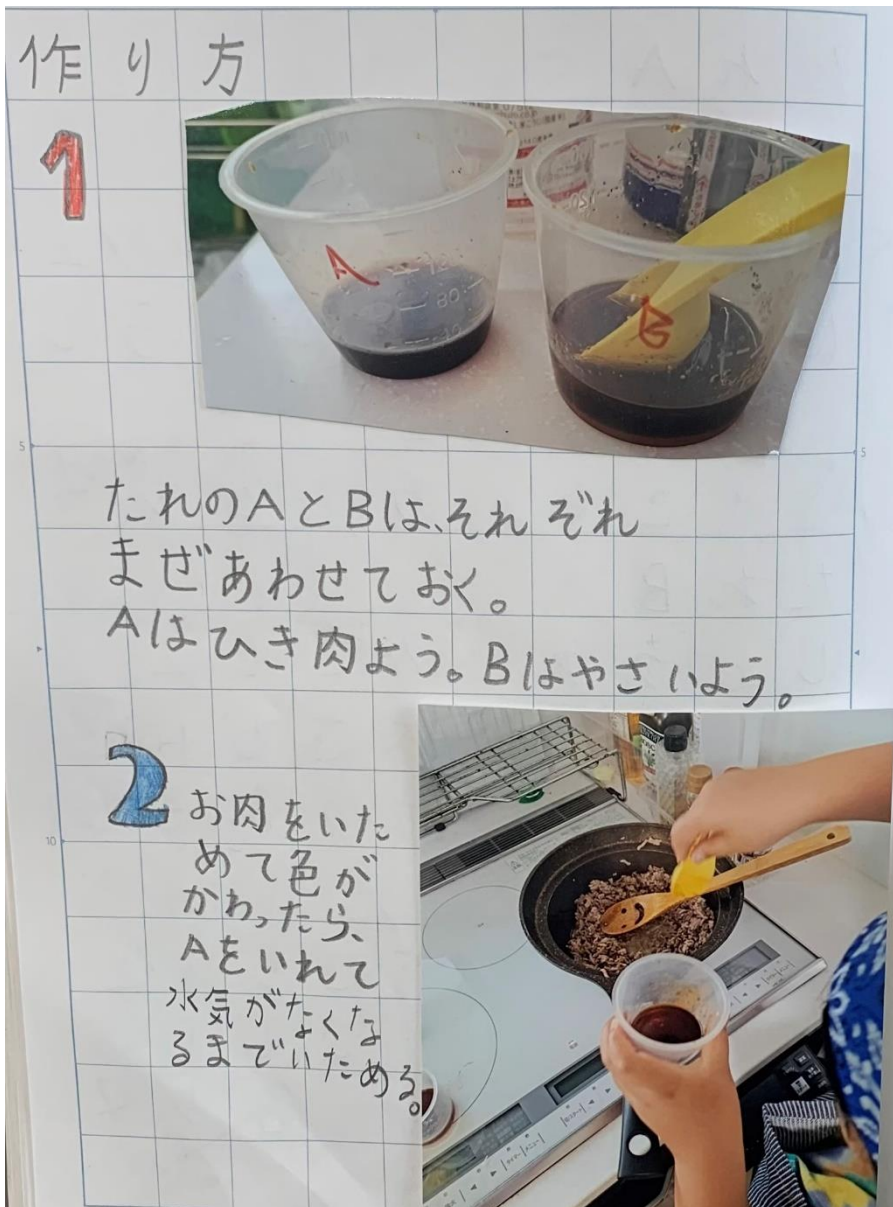 作り方
1
A
80
B
たれのAとBは、それぞれ
まぜあわせておく。
Aはひき肉よう。Bはやさいよう。
2
お肉をいた
めて色が
かわったら、
Aをいれて
水気がなくな
るまでいためる。
5
5
10